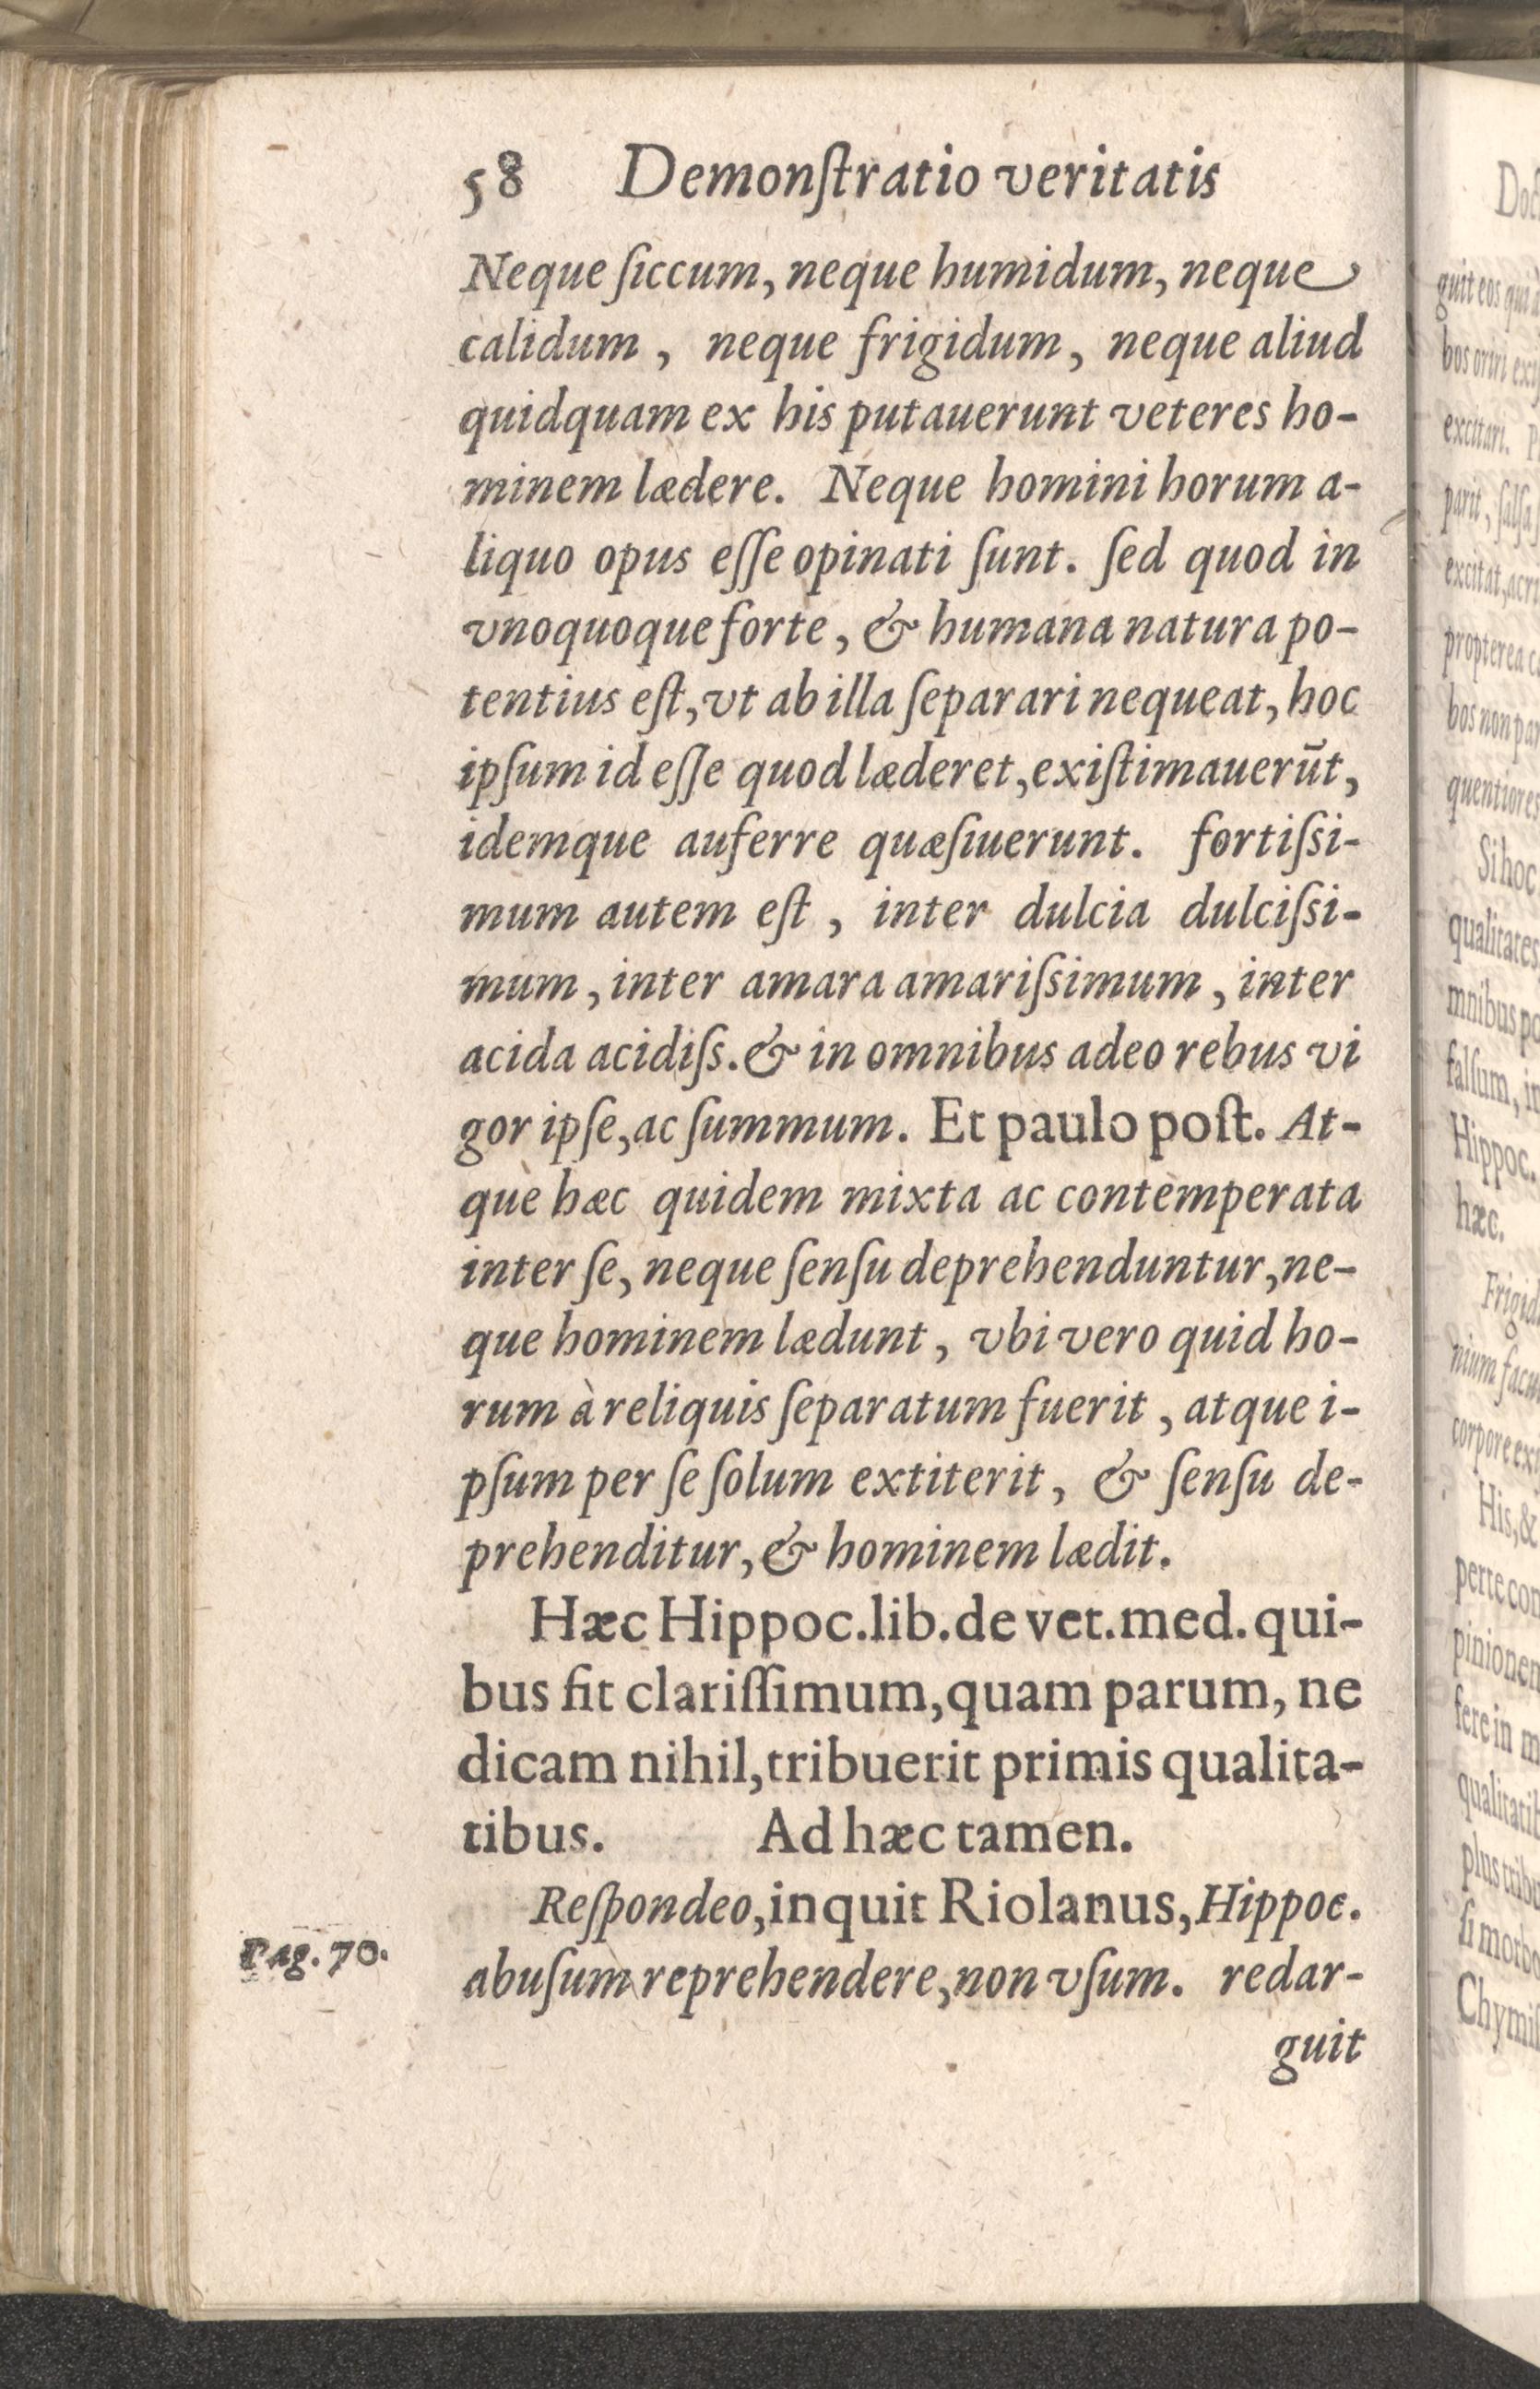 58 Demonſtratio veritatis
Neque ſiccum, neque humidum, neque
calidum, neque frigidum, neque aliud
quidquam ex his putauerunt veteres ho-
minem lædere. Neque homini horum a-
liquo opus eſſe opinati ſunt. ſed quod in
vnoquoque forte, & humana natura po-
tentius eſt, vt ab illa ſeparari nequeat, hoc
ipſum id eſſe quod læderet, exiſtimauerūt,
idemque auferre quæſiuerunt. fortiſsi-
mum autem eſt, inter dulcia dulciſsi-
mum, inter amara amariſsimum, inter
acida acidiſs. & in omnibus adeo rebus vi
gor ipſe, ac ſummum. Et paulo poſt. At-
que hæc quidem mixta ac contemperata
inter ſe, neque ſenſu deprehenduntur, ne-
que hominem lædunt, vbi vero quid ho-
rum à reliquis ſeparatum fuerit, atque i-
pſum per ſe ſolum extiterit, & ſenſu de-
prehenditur, & hominem lædit.
Hæc Hippoc. lib. de vet. med. qui-
bus fit clariſſimum, quam parum, ne
dicam nihil, tribuerit primis qualita-
tibus. Ad hæc tamen.
Reſpondeo, inquit Riolanus, Hippoc.
Pag. 70.
abuſum reprehendere, non vſum. redar-
guit
guit eos qui
bos oriri
excitari.
parit, ſalſa
excitat, acri
propterea
bos non
quentiores
Si hoc
qualitates
mnibus
falſum,
Hippoc.
hæc.
nium
corpore
His, &
fere in
ſi